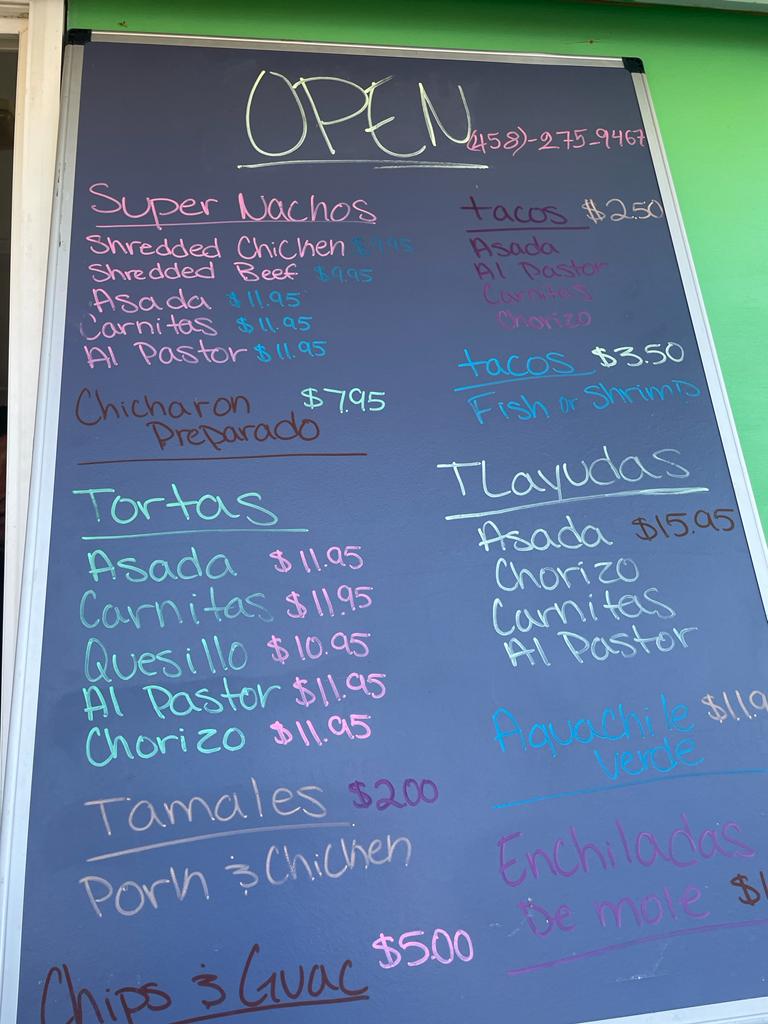 OPEN
(458)-275-9467
Super Nachos
Shredded Chicken $9.95
Shredded Beef $9.95
Asada $11.95
Carnitas $11.95
Al Pastor $11.95
Chicharon $7.95
Preparado
Tortas
Asada $11.95
Carnitas $11.95
Quesillo $10.95
Al Pastor $11.95
Chorizo $11.95
Tamales $2.00
Pork & Chicken
Chips & Guac $5.00
tacos $2.50
Asada
Al Pastor
Carnitas
Chorizo
tacos $3.50
Fish or Shrimp
TLayudas
Asada $15.95
Chorizo
Carnitas
Al Pastor
Aguachile $11.9
verde
Enchiladas
De mole $1